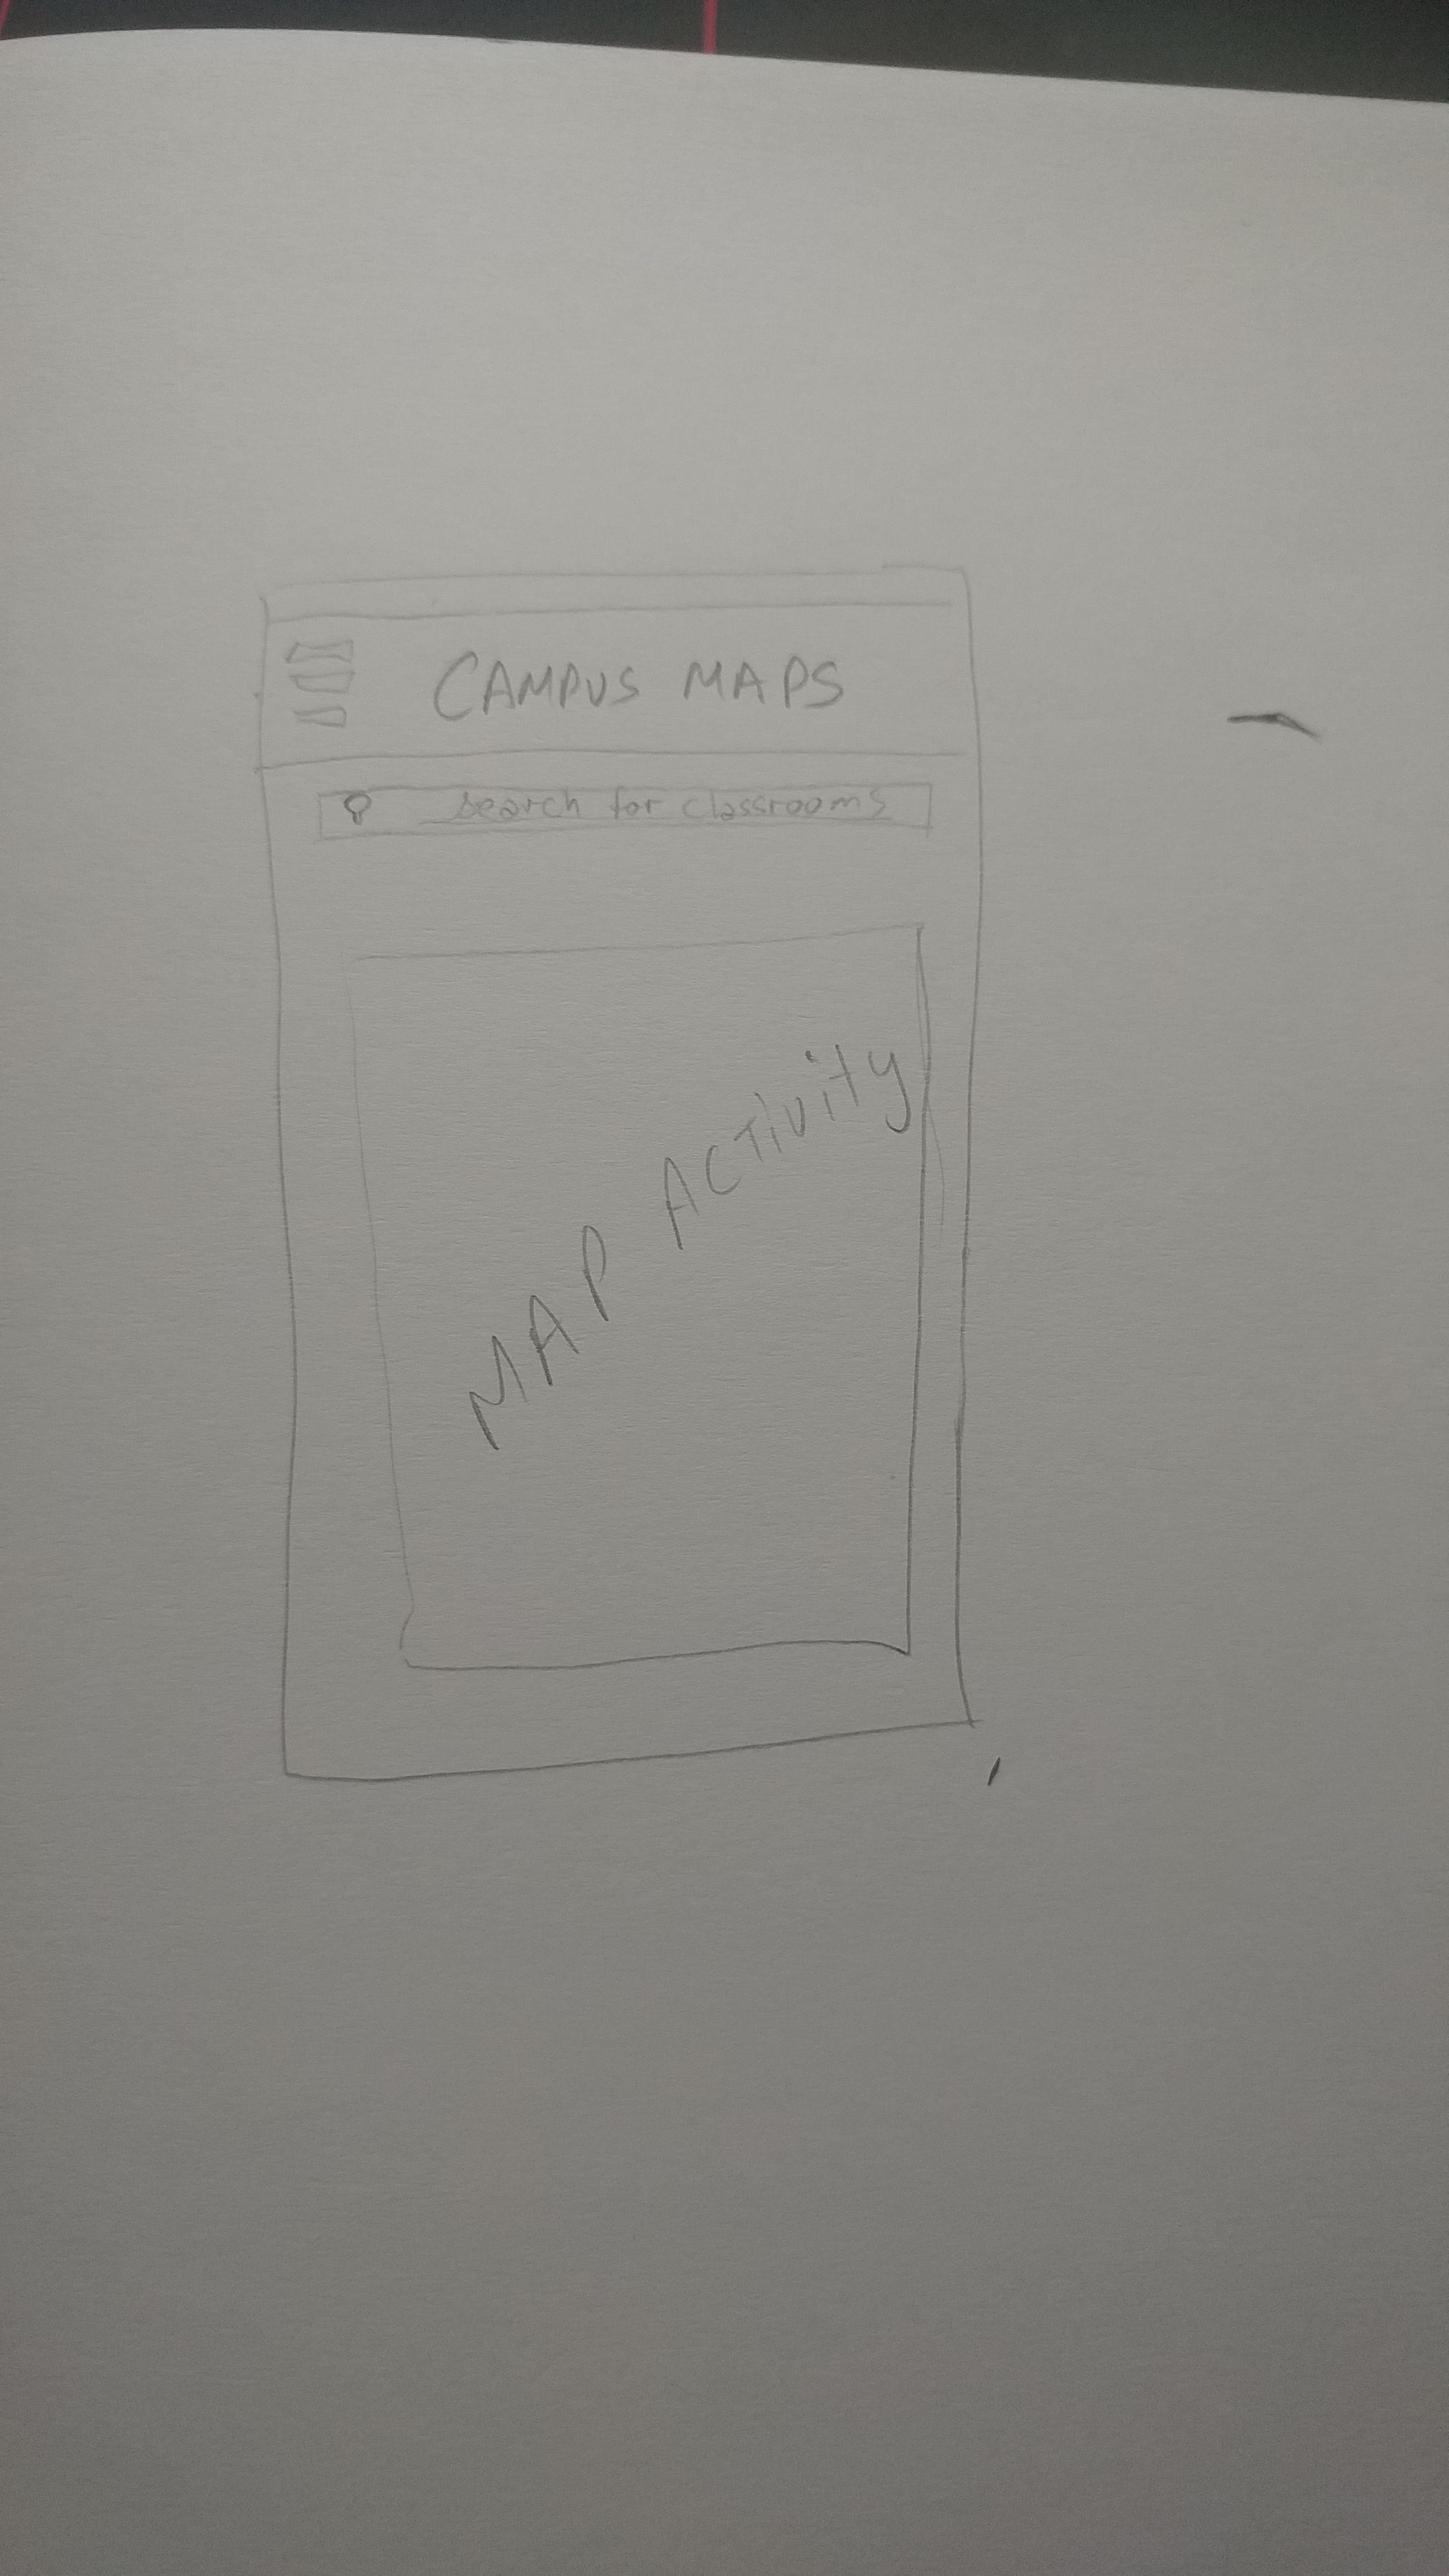 CAMPUS MAPS
search for classrooms
MAP ACTIVITY